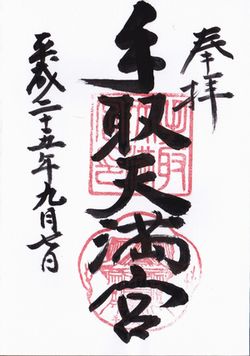 奉拝
手取天満宮
平成二十五年九月七日